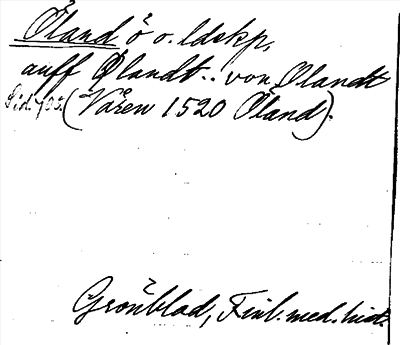 Öland ö o. ldskp,
auff Ølandt.. von Olandt
Sid. 703. (Våren 1520 Öland).
Grönblad, Finl. med. hist.